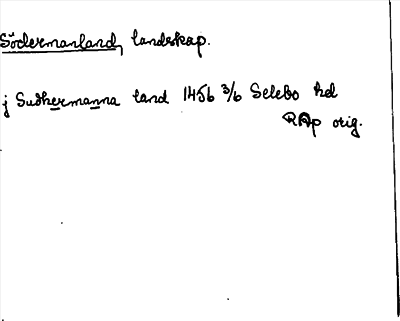 Södermanland, landskap.
j Sudhermanna land 1456 3/6 Selebo hd
RAp orig.